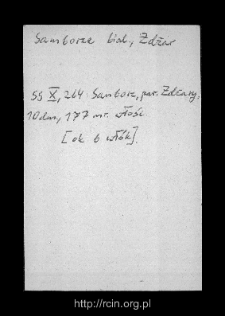 Samborze biał, Zdżar
SG X, 264 Samborz, par. Zdżary,
10 dm, 177 mr. włość.
[ok 6 włók].
Pobrano z http://rcin.org.pl